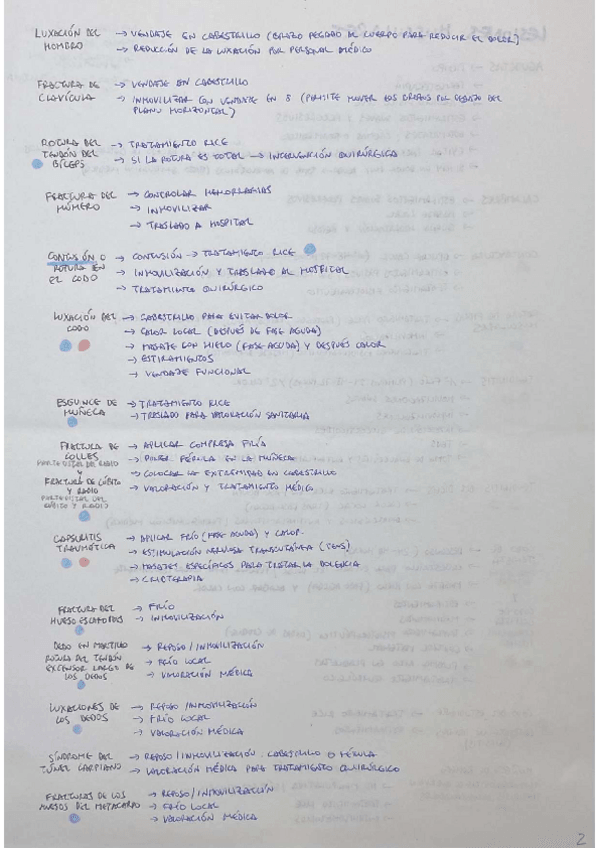 LUXACIÓN DEL HOMBRO → VENDAJE EN CABESTRILLO (BRAZO PEGADO AL CUERPO PARA REDUCIR EL DOLOR)
→ REDUCCIÓN DE LA LUXACIÓN POR PERSONAL MÉDICO
FRACTURA DE CLAVÍCULA → VENDAJE EN CABESTRILLO
→ INMOVILIZAR CON VENDAJE EN 8 (PERMITE MOVER LOS BRAZOS POR DEBAJO DEL PLANO HORIZONTAL)
ROTURA DEL TENDÓN DEL BÍCEPS → TRATAMIENTO RICE
→ SI LA ROTURA ES TOTAL → INTERVENCIÓN QUIRÚRGICA
FRACTURA DEL HÚMERO → CONTROLAR HEMORRAGIAS
→ INMOVILIZAR
→ TRASLADO A HOSPITAL
CONTUSIÓN O ROTURA EN EL CODO → CONTUSIÓN → TRATAMIENTO RICE
→ INMOVILIZACIÓN Y TRASLADO AL HOSPITAL
→ TRATAMIENTO QUIRÚRGICO
LUXACIÓN DEL CODO → CABESTRILLO PARA EVITAR DOLOR
→ CALOR LOCAL (DESPUÉS DE FASE AGUDA)
→ MASAJE CON HIELO (FASE AGUDA) Y DESPUÉS CALOR
→ ESTIRAMIENTOS
→ VENDAJE FUNCIONAL
ESGUINCE DE MUÑECA → TRATAMIENTO RICE
→ TRASLADO PARA VALORACIÓN SANITARIA
FRACTURA DE COLLES → APLICAR COMPRESA FRÍA
PARTE DISTAL DEL RADIO → PONER FÉRULA EN LA MUÑECA
Y FRACTURA DE CÚBITO Y RADIO → COLOCAR LA EXTREMIDAD EN CABESTRILLO
PARTE DISTAL DEL CÚBITO Y RADIO → VALORACIÓN Y TRATAMIENTO MÉDICO
CAPSULITIS TRAUMÁTICA → APLICAR FRÍO (FASE AGUDA) Y CALOR
→ ESTIMULACIÓN NERVIOSA TRANSCUTÁNEA (TENS)
→ MASAJES ESPECÍFICOS PARA TRATAR LA DOLENCIA
→ CRIOTERAPIA
FRACTURA DEL HUESO ESCAFOIDES → FRÍO
→ INMOVILIZACIÓN
DEDO EN MARTILLO → REPOSO / INMOVILIZACIÓN
ROTURA DEL TENDÓN EXTENSOR LARGO DE LOS DEDOS → FRÍO LOCAL
→ VALORACIÓN MÉDICA
LUXACIONES DE LOS DEDOS → REPOSO / INMOVILIZACIÓN
→ FRÍO LOCAL
→ VALORACIÓN MÉDICA
SÍNDROME DEL TÚNEL CARPIANO → REPOSO / INMOVILIZACIÓN. CABESTRILLO O FÉRULA
→ VALORACIÓN MÉDICA PARA TRATAMIENTO QUIRÚRGICO
FRACTURAS DE LOS HUESOS DEL METACARPO → REPOSO / INMOVILIZACIÓN
→ FRÍO LOCAL
→ VALORACIÓN MÉDICA
2